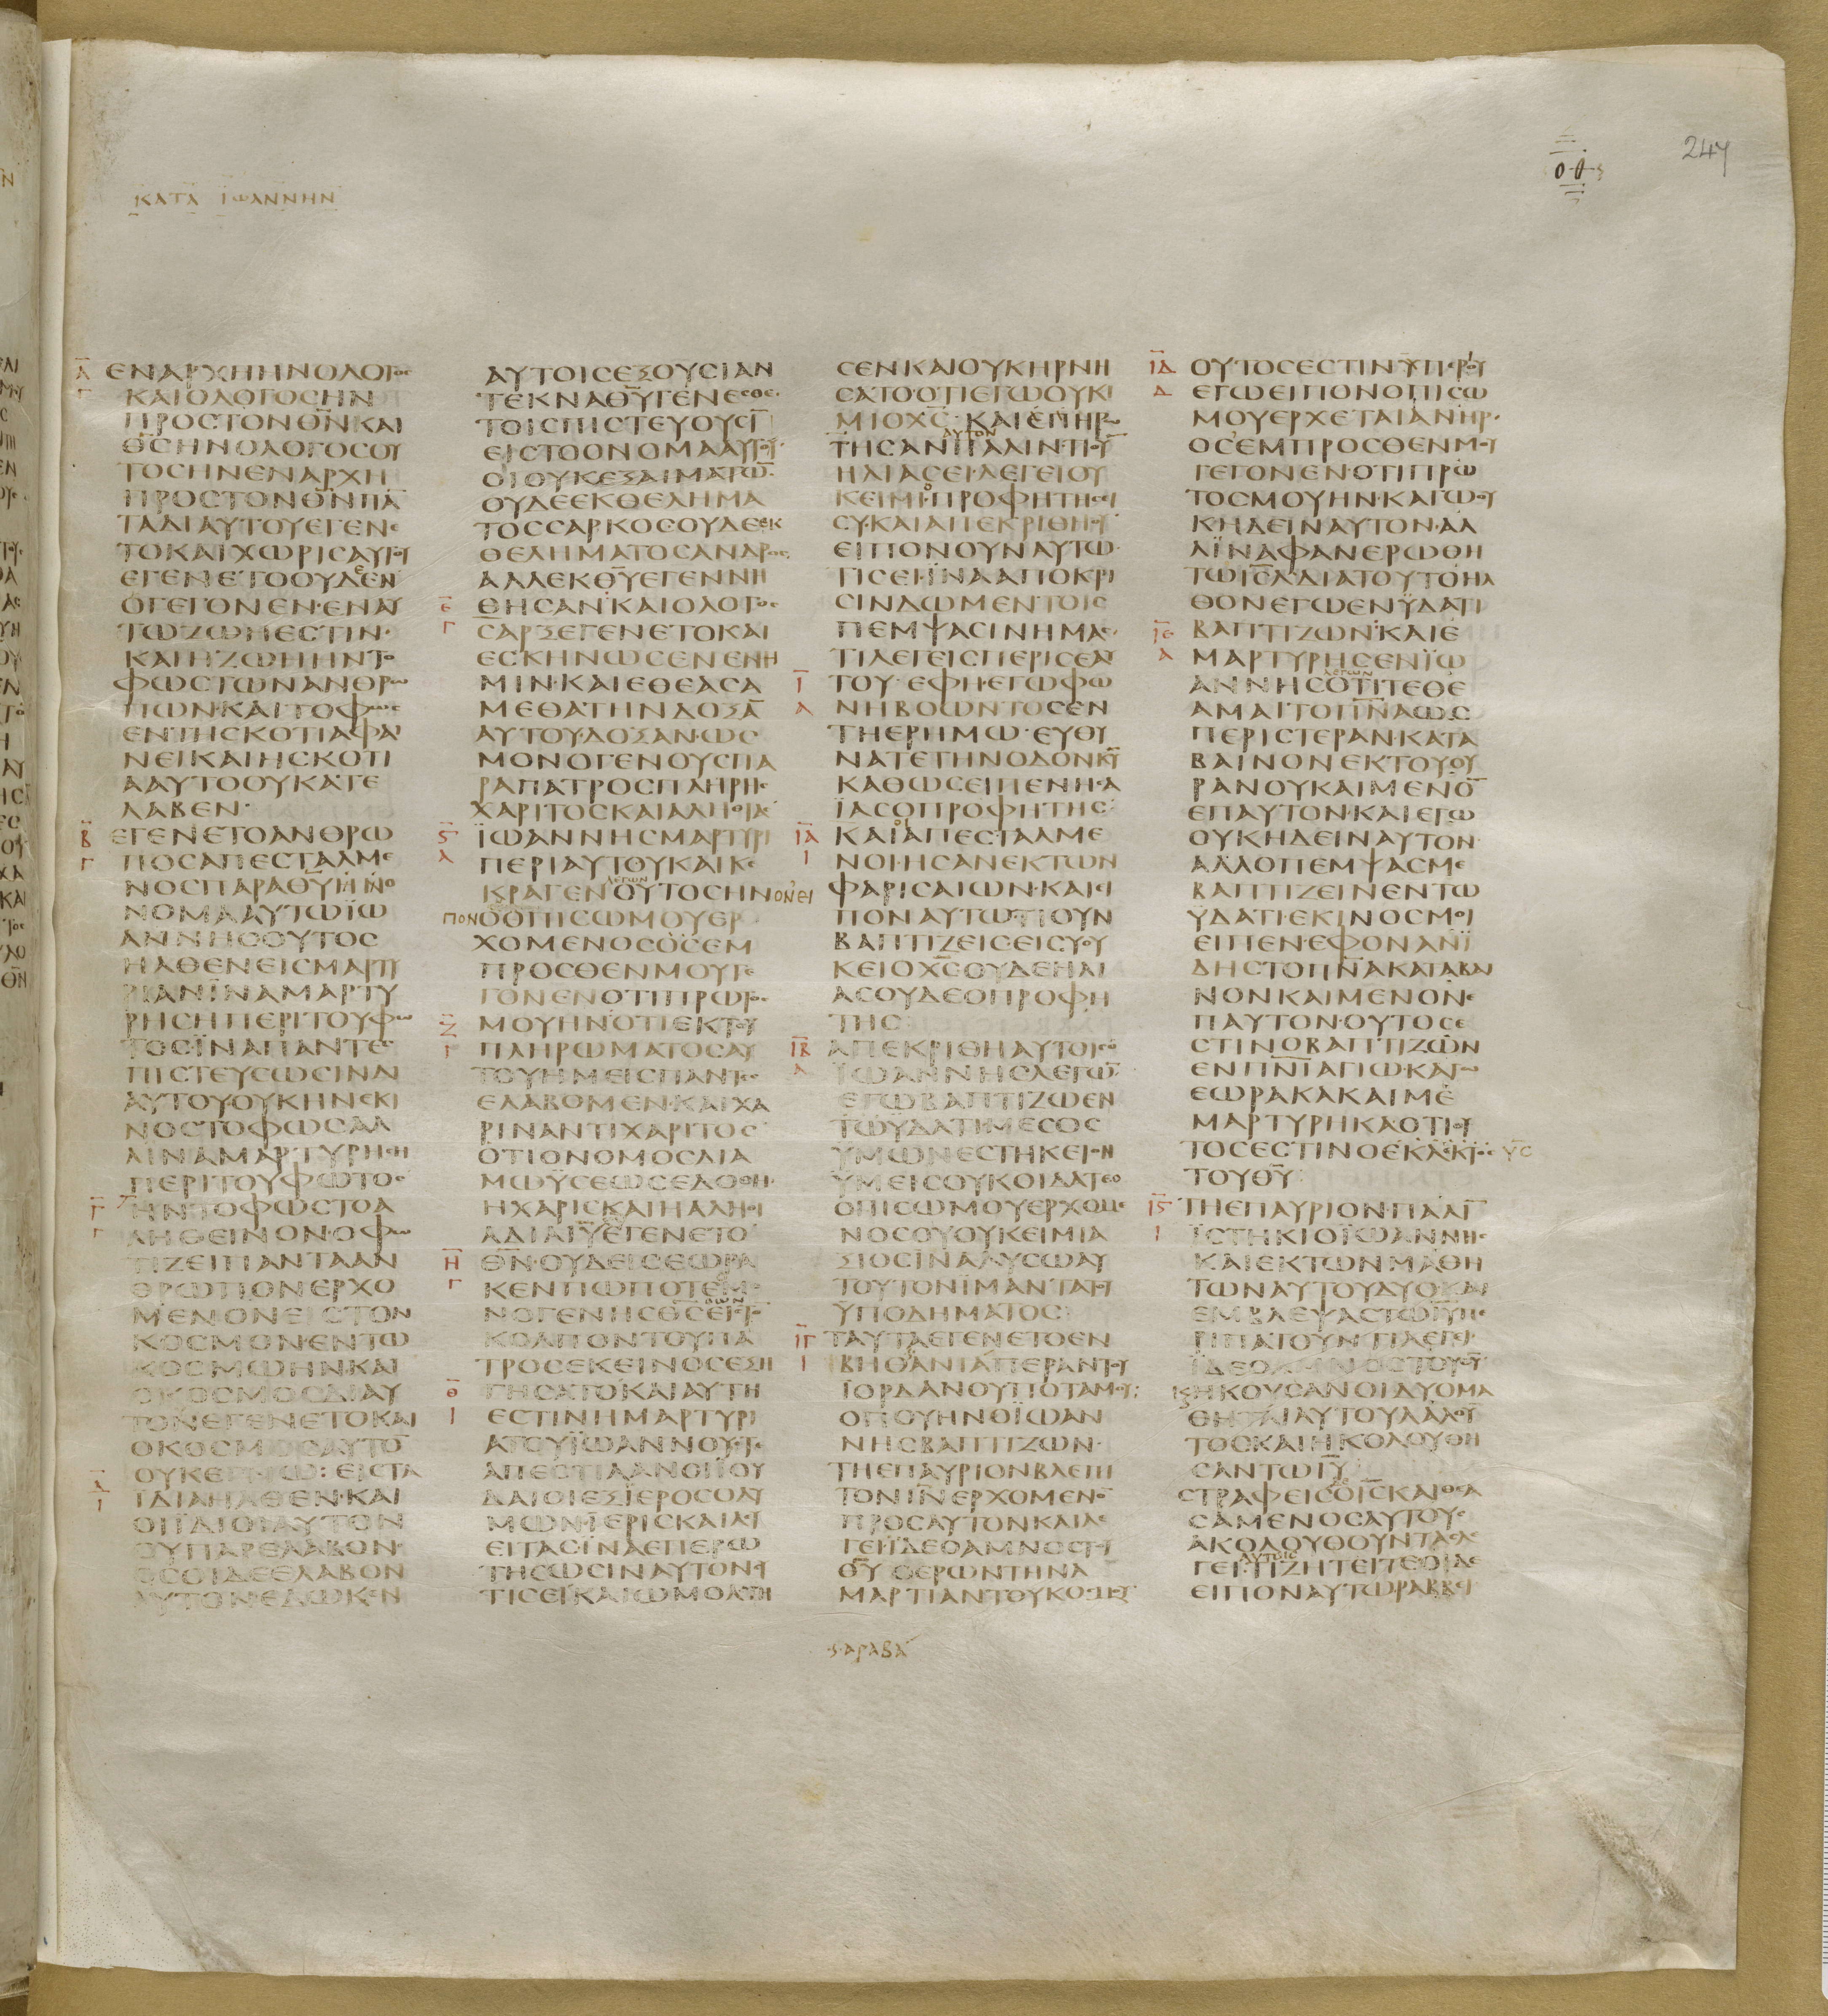 ΚΑΤΑ ΙΩΑΝΝΗΝ
ΟΘ
247
Α ΕΝΑΡΧΗΗΝΟΛΟΓΟC
Γ ΚΑΙΟΛΟΓΟCΗΝ
ΠΡΟCΤΟΝΘΝΚΑΙ
ΘCΗΝΟΛΟΓΟCΟΥ
ΤΟCΗΝΕΝΑΡΧΗ
ΠΡΟCΤΟΝΘΝΠΑ
ΤΑΔΙΑΥΤΟΥΕΓΕΝΕ
ΤΟΚΑΙΧΩΡΙCΑΥΤΟΥ
ΕΓΕΝΕΤΟΟΥΔΕΝ
ΟΓΕΓΟΝΕΝ·ΕΝΑΥ
ΤΩΖΩΗΕCΤΙΝ·
ΚΑΙΗΖΩΗΗΝΤΟ
ΦΩCΤΩΝΑΝΘΡΩ
ΠΩΝ·ΚΑΙΤΟΦΩC
ΕΝΤΗCΚΟΤΙΑΦΑΙ
ΝΕΙΚΑΙΗCΚΟΤΙ
ΑΑΥΤΟΟΥΚΑΤΕ
ΛΑΒΕΝ·
Β ΕΓΕΝΕΤΟΑΝΘΡΩ
Γ ΠΟCΑΠΕCΤΑΛΜΕ
ΝΟCΠΑΡΑΘΥΗΝΟ
ΝΟΜΑΑΥΤΩΪΩ
ΑΝΝΗCΟΥΤΟC
ΗΛΘΕΝΕΙCΜΑΡΤΥ
ΡΙΑΝΪΝΑΜΑΡΤΥ
ΡΗCΗΠΕΡΙΤΟΥΦΩ
ΤΟC·ΪΝΑΠΑΝΤΕC
ΠΙCΤΕΥCΩCΙΝΔΙ
ΑΥΤΟΥΟΥΚΗΝΕΚΙ
ΝΟCΤΟΦΩCΑΛ
ΛΙΝΑΜΑΡΤΥΡΗCΗ
ΠΕΡΙΤΟΥΦΩΤΟC
Γ ΗΝΤΟΦΩCΤΟΑ
Γ ΛΗΘΕΙΝΟΝ·ΟΦΩ
ΤΙΖΕΙΠΑΝΤΑΑΝ
ΘΡΩΠΟΝΕΡΧΟ
ΜΕΝΟΝΕΙCΤΟΝ
ΚΟCΜΟΝΕΝΤΩ
ΚΟCΜΩΗΝΚΑΙ
ΟΚΟCΜΟCΔΙΑΥ
ΤΟΝΕΓΕΝΕΤΟΚΑΙ
ΟΚΟCΜΟCΑΥΤΟ
ΟΥΚΕΓΝΩ:ΕΙCΤΑ
Δ Ι ΙΔΙΑΗΛΘΕΝ·ΚΑΙ
ΟΙΪΔΙΟΙΑΥΤΟΝ
ΟΥΠΑΡΕΛΑΒΟΝ·
ΟCΟΙΔΕΕΛΑΒΟΝ
ΑΥΤΟΝΕΔΩΚΕΝ
ΑΥΤΟΙCΕΞΟΥCΙΑΝ
ΤΕΚΝΑΘΥΓΕΝΕCΘΕ·
ΤΟΙCΠΙCΤΕΥΟΥCΙ
ΕΙCΤΟΟΝΟΜΑΑΥΤΟΥ·
ΟΙΟΥΚΕΞΑΙΜΑΤΩ
ΟΥΔΕΕΚΘΕΛΗΜΑ
ΤΟCCΑΡΚΟCΟΥΔΕΕΚ
ΘΕΛΗΜΑΤΟCΑΝΔΡΟC
ΑΛΛΕΚΘΥΕΓΕΝΝΗ
Ε ΘΗCΑΝ·ΚΑΙΟΛΟΓΟC
Γ CΑΡΞΕΓΕΝΕΤΟΚΑΙ
ΕCΚΗΝΩCΕΝΕΝΗ
ΜΙΝ·ΚΑΙΕΘΕΑCΑ
ΜΕΘΑΤΗΝΔΟΞΑ
ΑΥΤΟΥΔΟΞΑΝ·ΩC
ΜΟΝΟΓΕΝΟΥCΠΑ
ΡΑΠΑΤΡΟCΠΛΗΡΗC
ΧΑΡΙΤΟCΚΑΙΑΛΗΘΙΑC
Ϛ ΪΩΑΝΝΗCΜΑΡΤΥΡΙ
Α ΠΕΡΙΑΥΤΟΥΚΑΙΚΕ
ΚΡΑΓΕΝΛΕΓΩΝΟΥΤΟCΗΝΟΝΕΙ
ΠΟΝΟΟΠΙCΩΜΟΥΕΡ
ΧΟΜΕΝΟCΟCΕΜ
ΠΡΟCΘΕΝΜΟΥΓΕ
ΓΟΝΕΝΟΤΙΠΡΩΤΟC
Ζ ΜΟΥΗΝ·ΟΤΙΕΚΤΟΥ
Γ ΠΛΗΡΩΜΑΤΟCΑΥ
ΤΟΥΗΜΕΙCΠΑΝΤΕC
ΕΛΑΒΟΜΕΝ·ΚΑΙΧΑ
ΡΙΝΑΝΤΙΧΑΡΙΤΟC
ΟΤΙΟΝΟΜΟCΔΙΑ
ΜΩΫCΕΩCΕΔΟΘΗ·
ΗΧΑΡΙCΚΑΙΗΑΛΗΘΙ
ΑΔΙΑΙΥΕΓΕΝΕΤΟ
Η ΘΝ·ΟΥΔΕΙCΕΩΡΑ
Γ ΚΕΝΠΩΠΟΤΕΜΟ
ΝΟΓΕΝΗCΘCΕΙCΤΟ
ΚΟΛΠΟΝΤΟΥΠΑ
ΤΡΟCΕΚΕΙΝΟCΕΞΗ
Θ ΓΗCΑΤΟΚΑΙΑΥΤΗ
Ι ΕCΤΙΝΗΜΑΡΤΥΡΙ
ΑΤΟΥΪΩΑΝΝΟΥΟΤΕ
ΑΠΕCΤΙΛΑΝΟΙΪΟΥ
ΔΑΙΟΙΕΞΪΕΡΟCΟΛΥ
ΜΩΝ·ΪΕΡΙCΚΑΙΛΕΥ
ΕΙΤΑCΪΝΑΕΠΕΡΩ
ΤΗCΩCΙΝΑΥΤΟΝCΥ
ΤΙCΕΙ·ΚΑΙΩΜΟΛΟΓΗ
CΕΝΚΑΙΟΥΚΗΡΝΗ
CΑΤΟ·ΟΤΙΕΓΩΟΥΚΙ
ΜΙΟΧC·ΚΑΙΕΠΗΡΩ
ΤΗCΑΝΑΥΤΟΝΠΑΛΙΝ·ΤΙΟΥ
ΗΛΙΑCΕΙ·ΛΕΓΕΙΟΥ
ΚΕΙΜΙ·ΟΠΡΟΦΗΤΗCΕΙ
CΥ·ΚΑΙΑΠΕΚΡΙΘΗΟΥ
ΕΙΠΟΝΟΥΝΑΥΤΩ·
ΤΙCΕΙ·ΪΝΑΑΠΟΚΡΙ
CΙΝΔΩΜΕΝΤΟΙC
ΠΕΜΨΑCΙΝΗΜΑC·
ΤΙΛΕΓΕΙCΠΕΡΙCΕΑΥ
Ι ΤΟΥ·ΕΦΗ·ΕΓΩΦΩ
Α ΝΗΒΟΩΝΤΟCΕΝ
ΤΗΕΡΗΜΩ·ΕΥΘΥ
ΝΑΤΕΤΗΝΟΔΟΝΚΥ
ΚΑΘΩCΕΙΠΕΝΗCΑ
ΪΑCΟΠΡΟΦΗΤΗC
ΙΑ ΚΑΙΟΙΑΠΕCΤΑΛΜΕ
Ι ΝΟΙ·ΗCΑΝΕΚΤΩΝ
ΦΑΡΙCΑΙΩΝ·ΚΑΙΕΙ
ΠΟΝΑΥΤΩΤΙΟΥΝ
ΒΑΠΤΙΖΕΙCΕΙCΥΟΥ
ΚΕΙΟΧCΟΥΔΕΗΛΙ
ΑCΟΥΔΕΟΠΡΟΦΗ
ΤΗC
ΙΒ ΑΠΕΚΡΙΘΗΑΥΤΟΙCΟ
Α ΪΩΑΝΝΗCΛΕΓΩ
ΕΓΩΒΑΠΤΙΖΩΕΝ
ΤΩΫΔΑΤΙΜΕCΟC
ΥΜΩΝΕCΤΗΚΕΙΟΝ
ΫΜΕΙCΟΥΚΟΙΔΑΤΕΟ
ΟΠΙCΩΜΟΥΕΡΧΟΜΕ
ΝΟCΟΥΟΥΚΕΙΜΙΑ
ΞΙΟCΪΝΑΛΥCΩΑΥ
ΤΟΥΤΟΝΪΜΑΝΤΑΤΟΥ
ΫΠΟΔΗΜΑΤΟC
ΙΓ ΤΑΥΤΑΕΓΕΝΕΤΟΕΝ
Ι ΒΗΘΑΝΙΑΠΕΡΑΝΤΟΥ
ΪΟΡΔΑΝΟΥΠΟΤΑΜΟΥ;
ΟΠΟΥΗΝΟΪΩΑΝ
ΝΗCΒΑΠΤΙΖΩΝ·
ΤΗΕΠΑΥΡΙΟΝΒΛΕΠΙ
ΤΟΝΙΝΕΡΧΟΜΕΝΟ
ΠΡΟCΑΥΤΟΝΚΑΙΛΕ
ΓΕΙΪΔΕΟΑΜΝΟCΤΟΥ
ΘΥΟΕΡΩΝΤΗΝΑ
ΜΑΡΤΙΑΝΤΟΥΚΟCΜΟΥ
Ϛ·ΑΡΑΒΑ
ΙΔ ΟΥΤΟCΕCΤΙΝΥΠΕΡΟΥ
Δ ΕΓΩΕΙΠΟΝΟΠΙCΩ
ΜΟΥΕΡΧΕΤΑΙΑΝΗΡ·
ΟCΕΜΠΡΟCΘΕΝΜΟΥ
ΓΕΓΟΝΕΝ·ΟΤΙΠΡΩ
ΤΟCΜΟΥΗΝ·ΚΑΓΩΟΥ
ΚΗΔΕΙΝΑΥΤΟΝ·ΑΛ
ΛΪΝΑΦΑΝΕΡΩΘΗ
ΤΩΙCΛΔΙΑΤΟΥΤΟΗΛ
ΘΟΝΕΓΩΕΝΫΔΑΤΙ
ΙΕ ΒΑΠΤΙΖΩΝ·ΚΑΙΕ
Α ΜΑΡΤΥΡΗCΕΝΪΩ
ΑΝΝΗCΛΕΓΩΝΟΤΙΤΕΘΕ
ΑΜΑΙΤΟΠΝΑΩC
ΠΕΡΙCΤΕΡΑΝ·ΚΑΤΑ
ΒΑΙΝΟΝΕΚΤΟΥΟΥ
ΡΑΝΟΥΚΑΙΜΕΝΟ
ΕΠΑΥΤΟΝ·ΚΑΙΕΓΩ
ΟΥΚΗΔΕΙΝΑΥΤΟΝ·
ΑΛΛΟΠΕΜΨΑCΜΕ
ΒΑΠΤΙΖΕΙΝΕΝΤΩ
ΫΔΑΤΙ·ΕΚΙΝΟCΜΟΙ
ΕΙΠΕΝ·ΕΦΟΝΑΝΪ
ΔΗCΤΟΠΝΑΚΑΤΑΒΑΙ
ΝΟΝΚΑΙΜΕΝΟΝΕ
ΠΑΥΤΟΝ·ΟΥΤΟCΕ
CΤΙΝΟΒΑΠΤΙΖΩΝ
ΕΝΠΝΙΑΓΙΩ·ΚΑΓΩ
ΕΩΡΑΚΑΚΑΙΜΕ
ΜΑΡΤΥΡΗΚΑΟΤΙΟΥ
ΤΟCΕCΤΙΝΟΕΚΛΕΚΤΟC ΥC
ΤΟΥΘΥ
ΙϚ ΤΗΕΠΑΥΡΙΟΝ·ΠΑΛΙ
Ι ΪCΤΗΚΙΟΪΩΑΝΝΗC
ΚΑΙΕΚΤΩΝΜΑΘΗ
ΤΩΝΑΥΤΟΥΔΥΟΚΑΙ
ΕΜΒΛΕΨΑCΤΩΙΥΠΕ
ΡΙΠΑΤΟΥΝΤΙΛΕΓΕΙ·
ΪΔΕΟΑΜΝΟCΤΟΥΘΥ
ΚΗΚΟΥCΑΝΟΙΔΥΟΜΑ
ΘΗΤΑΙΑΥΤΟΥΛΑΛΟΥ
ΤΟCΚΑΙΗΚΟΛΟΥΘΗ
CΑΝΤΩΙΥ
CΤΡΑΦΕΙCΔΕΟΙCΚΑΙΘΕΑ
CΑΜΕΝΟCΑΥΤΟΥC
ΑΚΟΛΟΥΘΟΥΝΤΑCΛΕ
ΓΕΙΑΥΤΟΙC·ΤΙΖΗΤΕΙΤΕΟΙΔΕ
ΕΙΠΟΝΑΥΤΩΡΑΒΒΕΙ